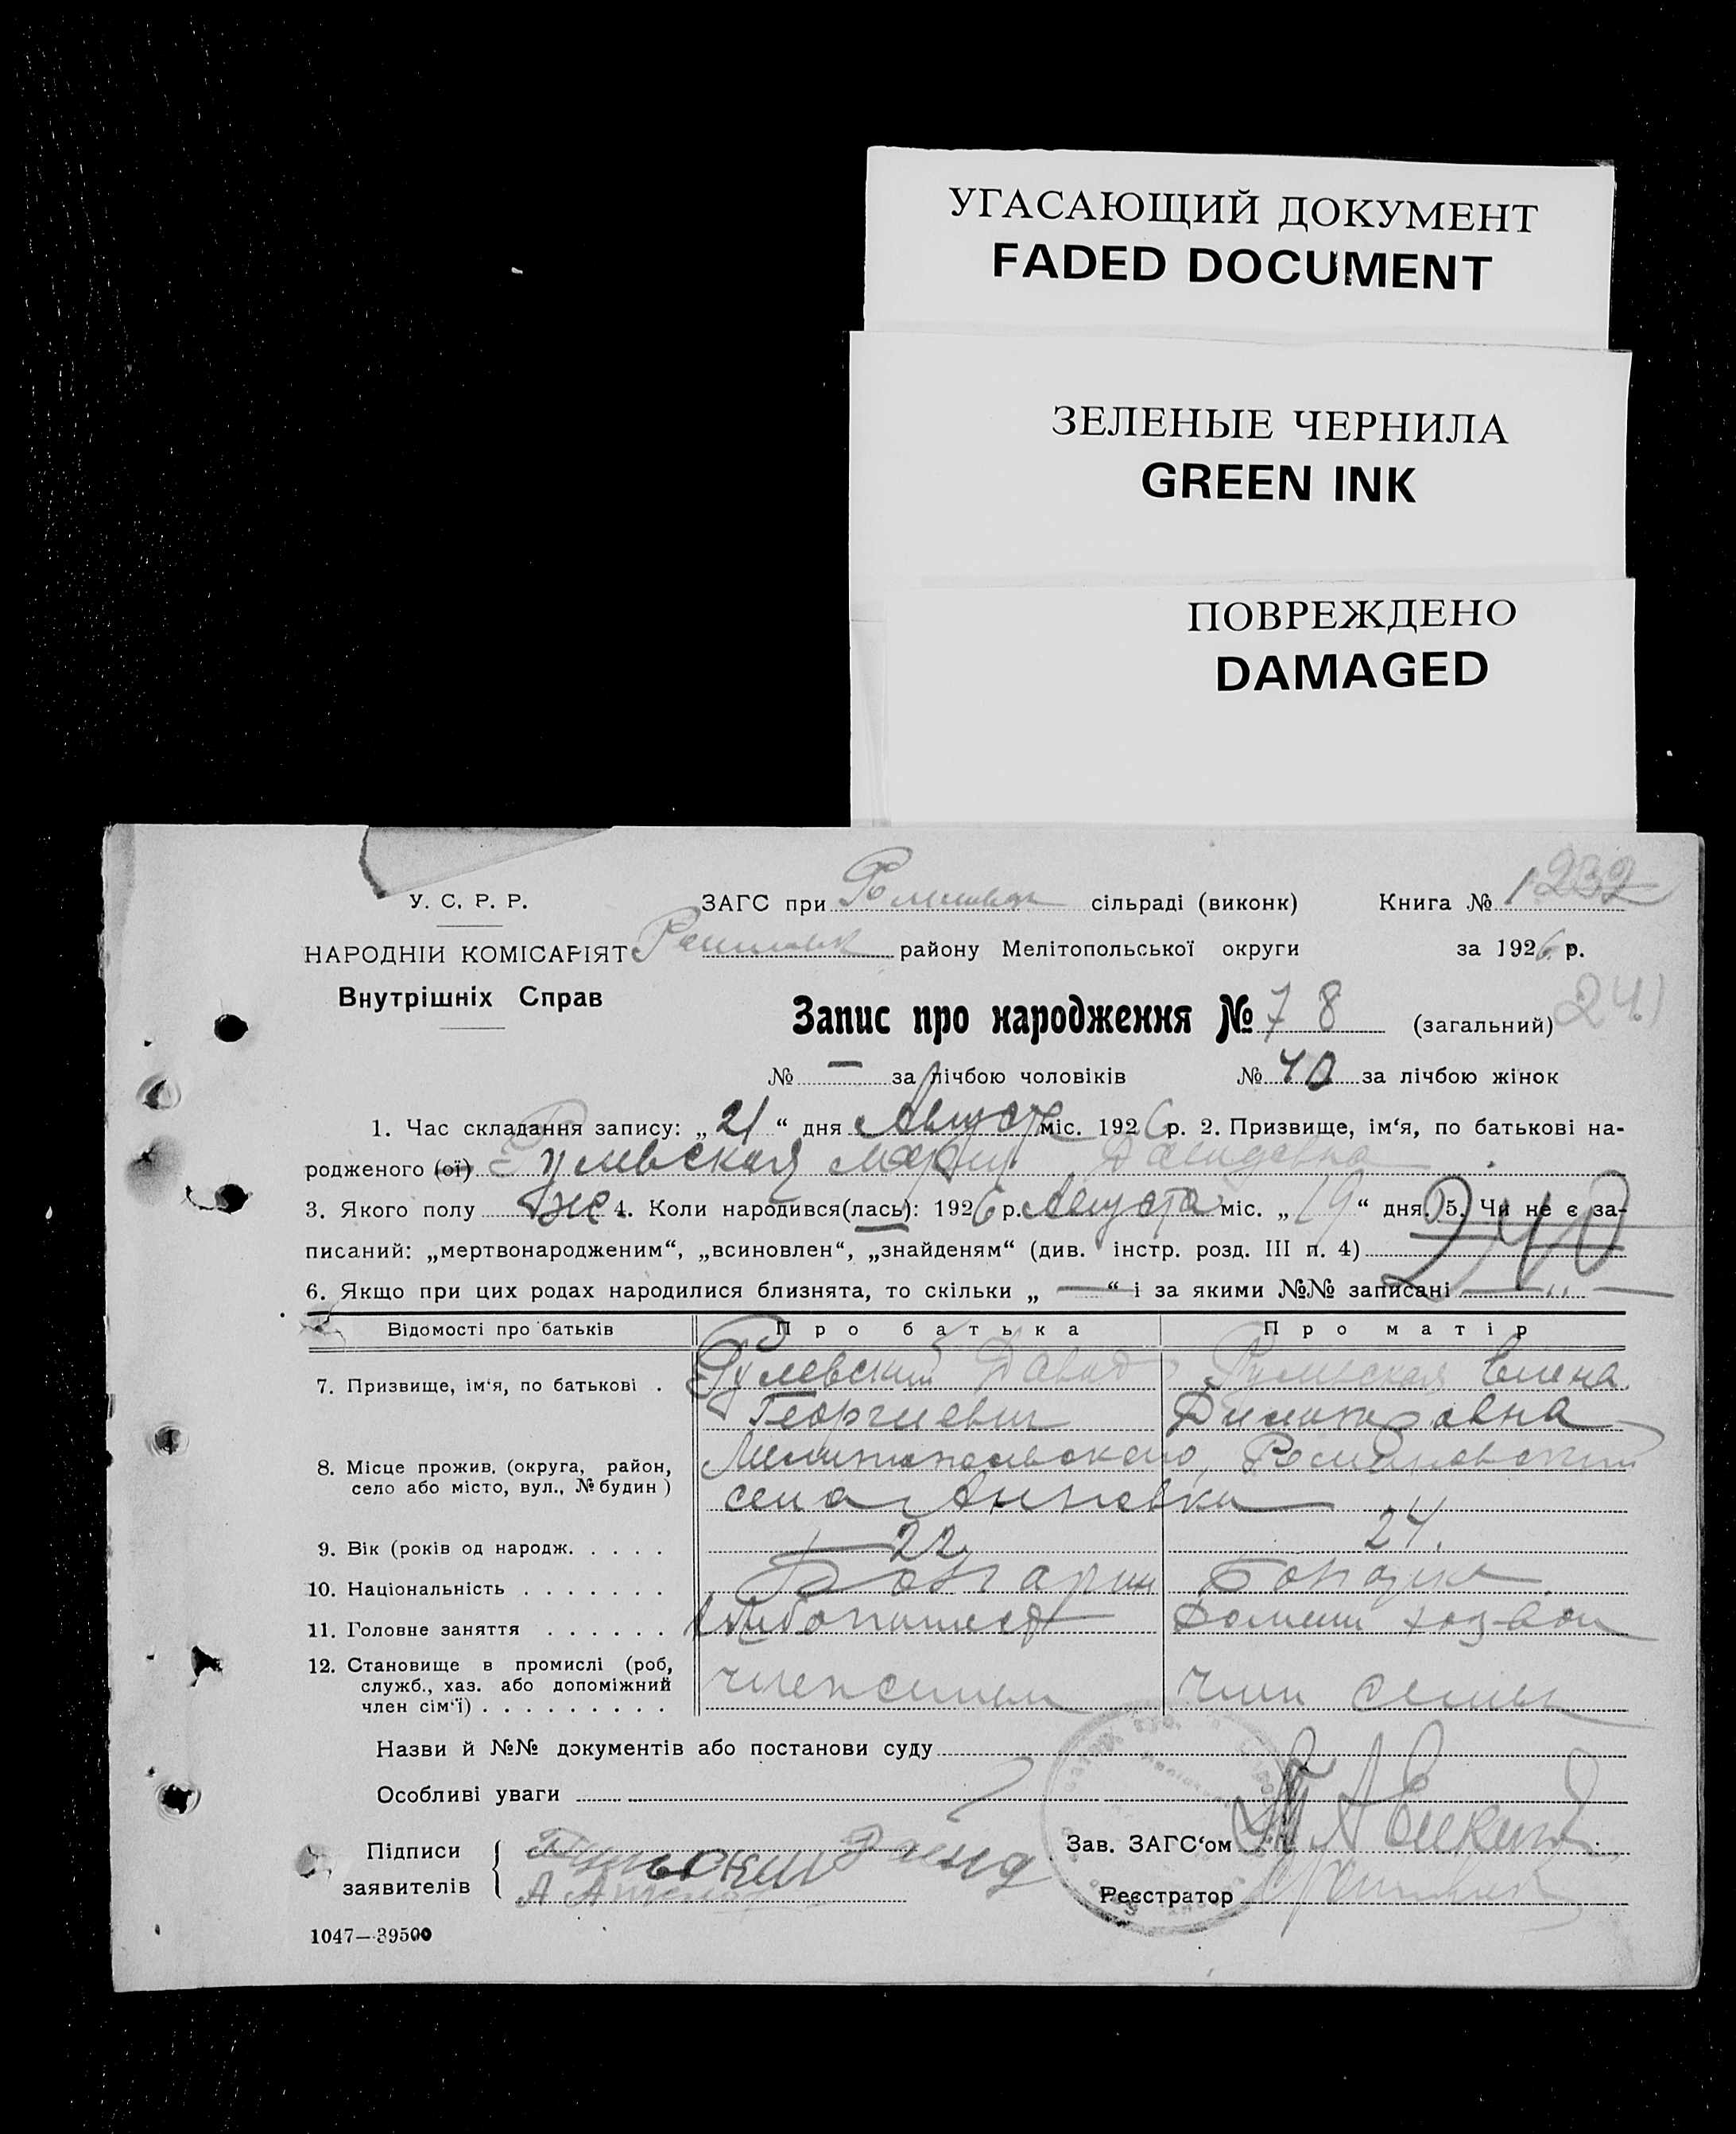 УГАСАЮЩИЙ ДОКУМЕНТ
FADED DOCUMENT
ЗЕЛЕНЫЕ ЧЕРНИЛА
GREEN INK
ПОВРЕЖДЕНО
DAMAGED
У. С. Р. Р.
ЗАГС при сільраді (виконк) Книга № 232
НАРОДНІЙ КОМІСАРІЯТ району Мелітопольської округи за 1926 р.
Внутрішніх Справ
Запис про народження № 78 (загальний) 241
№ — за лічбою чоловіків № 40 за лічбою жінок
1. Час складання запису: „21“ дня Август міс. 1926 р. 2. Призвище, ім‘я, по батькові на-
родженого (ої) Гулевская Мария Давидовна
3. Якого полу же 4. Коли народився(лась): 1926 р. Августа міс. „19“ дня. 5. Чи не є за-
писаний: „мертвонародженим“, „всиновлен“, „знайденям“ (див. інстр. розд. III п. 4) 240
6. Якщо при цих родах народилися близнята, то скільки „—“ і за якими №№ записані —
Відомості про батьків Про батька Про матір
7. Призвище, ім‘я, по батькові . Гулевский Давид Гулевская Елена
Георгиевич Димитровна
8. Місце прожив. (округа, район, Мелитопольского, Романовский
село або місто, вул., № будин) села Анновки
9. Вік (років од народж. . . . . 22 24.
10. Національність . . . . . . . Болгарин Болгарка
11. Головне заняття . . . . . . Хлебопашест Домаш хоз-вом
12. Становище в промислі (роб,
служб., хаз. або допоміжний член семьи член семьи
член сім‘ї) . . . . . . . . .
Назви й №№ документів або постанови суду
Особливі уваги
Підписи Гулевский Давид Зав. ЗАГС‘ом
заявителів Реєстратор
1047—39500